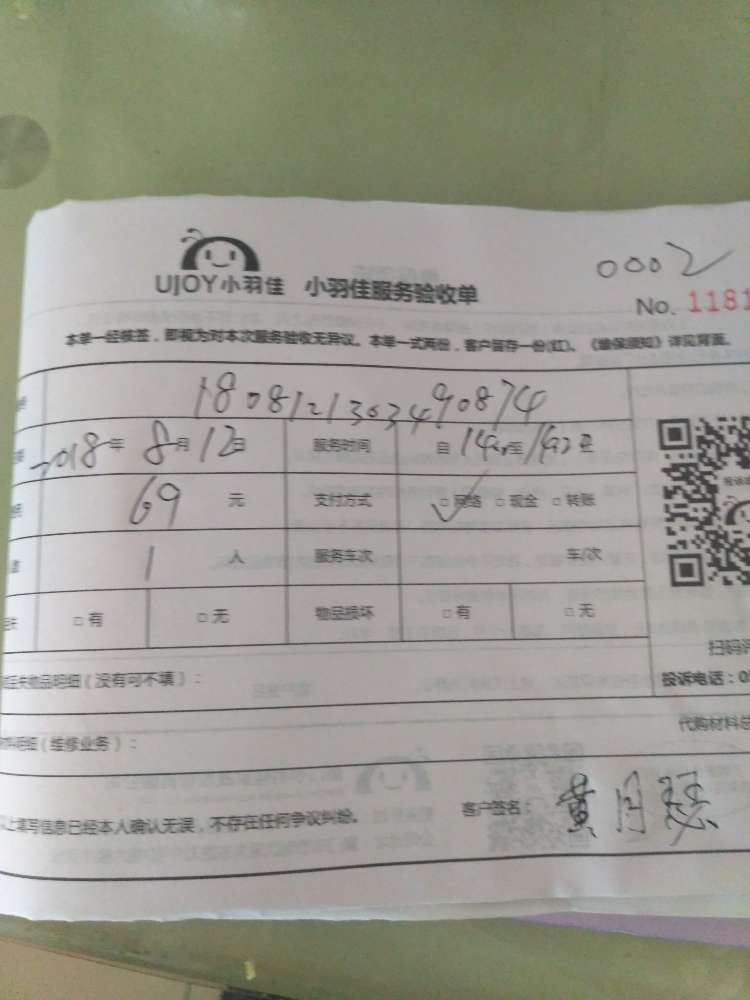 UJOY小羽佳 小羽佳服务验收单
0002
No. 1181
本单一经核签，即视为对本次服务验收无异议。本单一式两份，客户留存一份(红)。《维保须知》详见背面。
180812130349 0874
2018年 8月 12日 服务时间 自 至
69 元 支付方式 □网络 □现金 □转账
1 人 服务车次 车/次
□有 □无 物品损坏 □有 □无
扫码
失物品明细（没有可不填）：
投诉电话：0
明细（维修业务）：
代购材料总
上填写信息已经本人确认无误，不存在任何争议纠纷。 客户签名： 黄月瑟